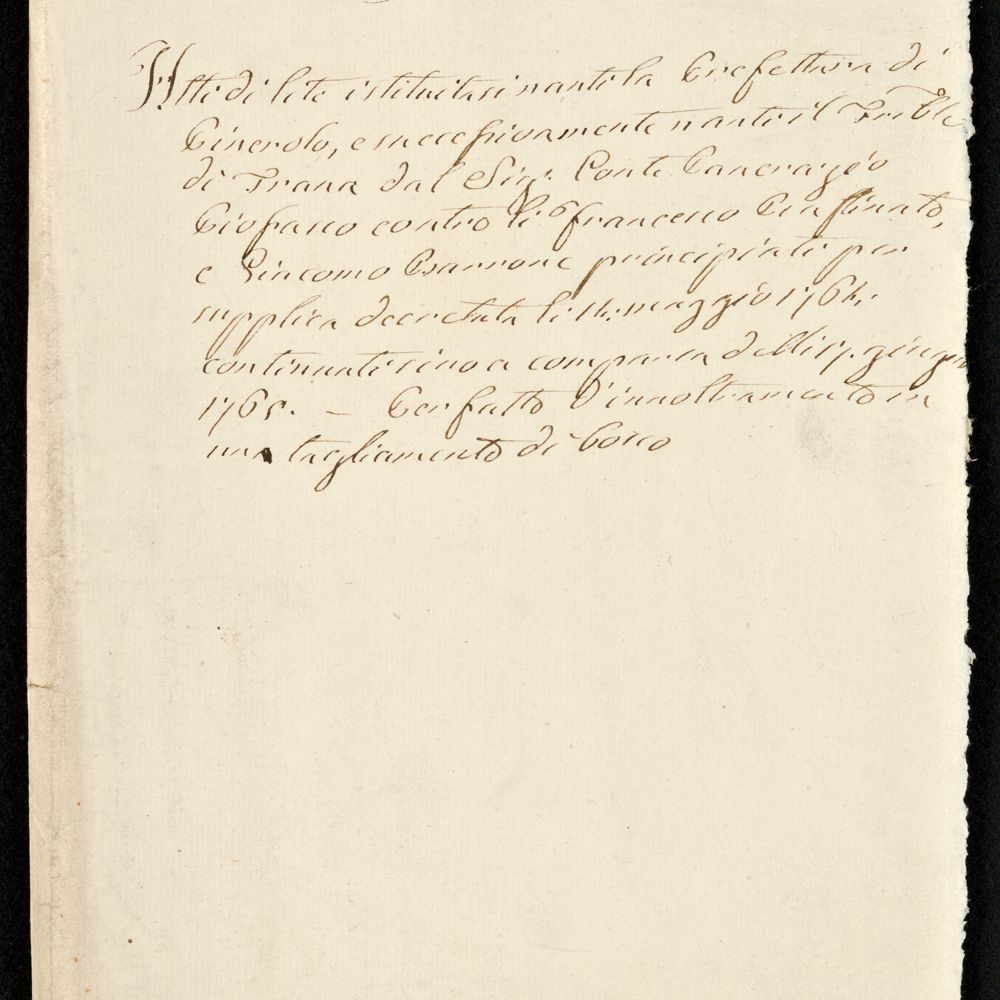 Atti di lite istituitasi nanti la Prefettura di
Pinerolo, e successivamente nanti il Trib.le
di Trana dal Sig.r Conte Pancrazio
Piofasco contro li Francesco
e Giacomo principiati per
supplica decretata li 14. maggio 1764.
continuati sino a comparsa delli 17. giugno
1765. — Per fatto d'innoltramento in
una tagliamento di bosco